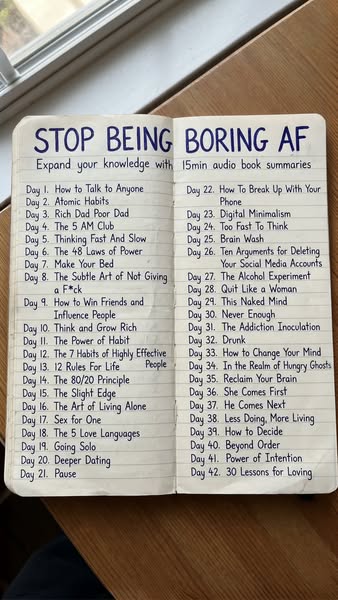 STOP BEING BORING AF
Expand your knowledge with 15min audio book summaries
Day 1. How to Talk to Anyone
Day 2. Atomic Habits
Day 3. Rich Dad Poor Dad
Day 4. The 5 AM Club
Day 5. Thinking Fast And Slow
Day 6. The 48 Laws of Power
Day 7. Make Your Bed
Day 8. The Subtle Art of Not Giving
a F*ck
Day 9. How to Win Friends and
Influence People
Day 10. Think and Grow Rich
Day 11. The Power of Habit
Day 12. The 7 Habits of Highly Effective
People
Day 13. 12 Rules For Life
Day 14. The 80/20 Principle
Day 15. The Slight Edge
Day 16. The Art of Living Alone
Day 17. Sex for One
Day 18. The 5 Love Languages
Day 19. Going Solo
Day 20. Deeper Dating
Day 21. Pause
Day 22. How To Break Up With Your
Phone
Day 23. Digital Minimalism
Day 24. Too Fast To Think
Day 25. Brain Wash
Day 26. Ten Arguments for Deleting
Your Social Media Accounts
Day 27. The Alcohol Experiment
Day 28. Quit Like a Woman
Day 29. This Naked Mind
Day 30. Never Enough
Day 31. The Addiction Inoculation
Day 32. Drunk
Day 33. How to Change Your Mind
Day 34. In the Realm of Hungry Ghosts
Day 35. Reclaim Your Brain
Day 36. She Comes First
Day 37. He Comes Next
Day 38. Less Doing, More Living
Day 39. How to Decide
Day 40. Beyond Order
Day 41. Power of Intention
Day 42. 30 Lessons for Loving